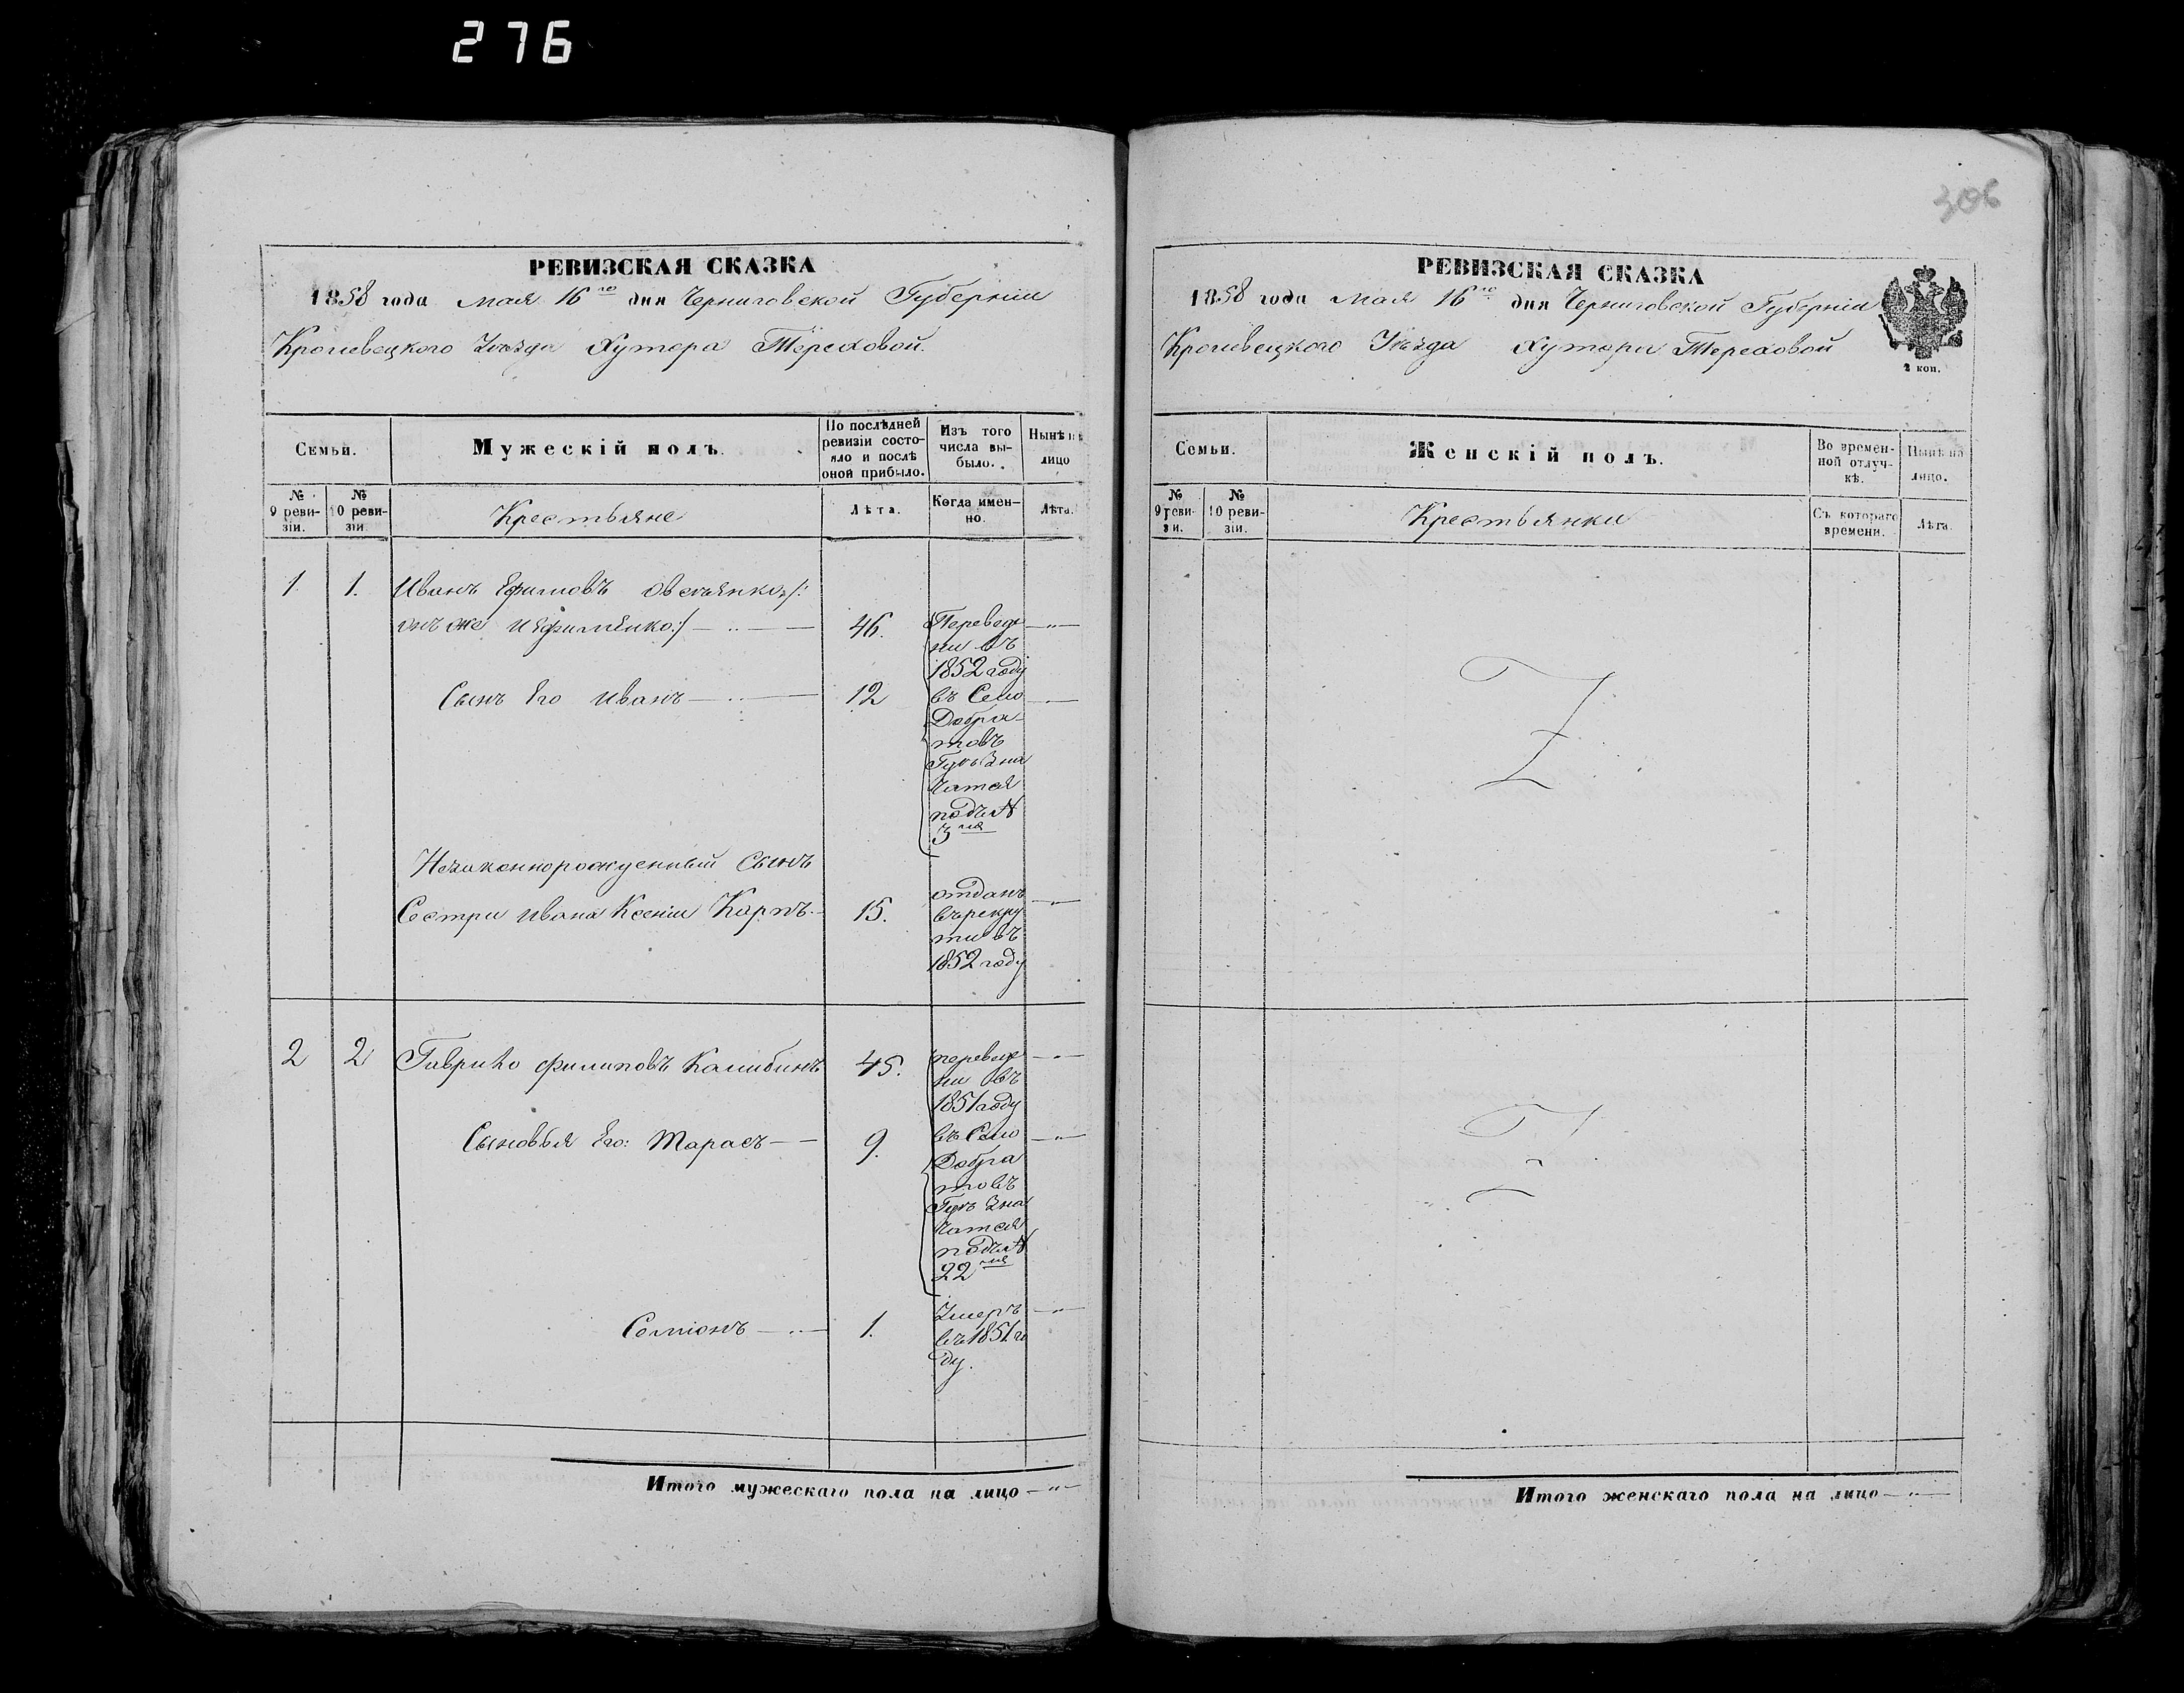 276
306
РЕВИЗСКАЯ СКАЗКА
1858 года мая 16го дня Черниговской Губерніи
Кролевецкого Уезда Хутора Тереховой.
Семьи.
Мужескій полъ.
По послѣдней ревизіи состояло и послѣ оной прибыло.
Изъ того числа выбыло.
Нынѣ на лицо
№ 9 ревизіи.
№ 10 ревизіи
Крестьяне
Лѣта.
Когда именно.
Лѣта.
1 1. Иванъ Ефимовъ Овсѣянко /:
онъ же и Ефименко :/ — „ — 46.
Переведе
ни въ
1852 году
въ Село
Добра-
товъ
Гутъ зна
чатся
подъ №
3мъ
Сынъ Его Иванъ — „ — 12
Незаконнорожденный Сынъ
Сестри Ивана Ксеніи Карпъ. 15.
отданъ
въ рекру
ти въ
1852 году
2 2 Гаврило Филиповъ 45.
переведе
ни въ
1851 году
въ Село
Добра
товъ
Гутъ зна
чатся
подъ №
22мъ
Сыновья Его: Тарасъ — 9.
Семіонъ — „ — 1.
Умеръ
въ 1851 го
ду.
Итого мужескаго пола на лицо — „ —
РЕВИЗСКАЯ СКАЗКА
1858 года мая 16го дня Черниговской Губерніи
Кролевецкого Уѣзда Хутора Тереховой
2 коп.
Семьи.
Женскій полъ.
Во временной отлучкѣ.
Нынѣ на лицо.
№ 9 ревизіи.
№ 10 ревизіи.
Крестьянки
Съ котораго времени.
Лѣта.
Итого женскаго пола на лицо — „ —